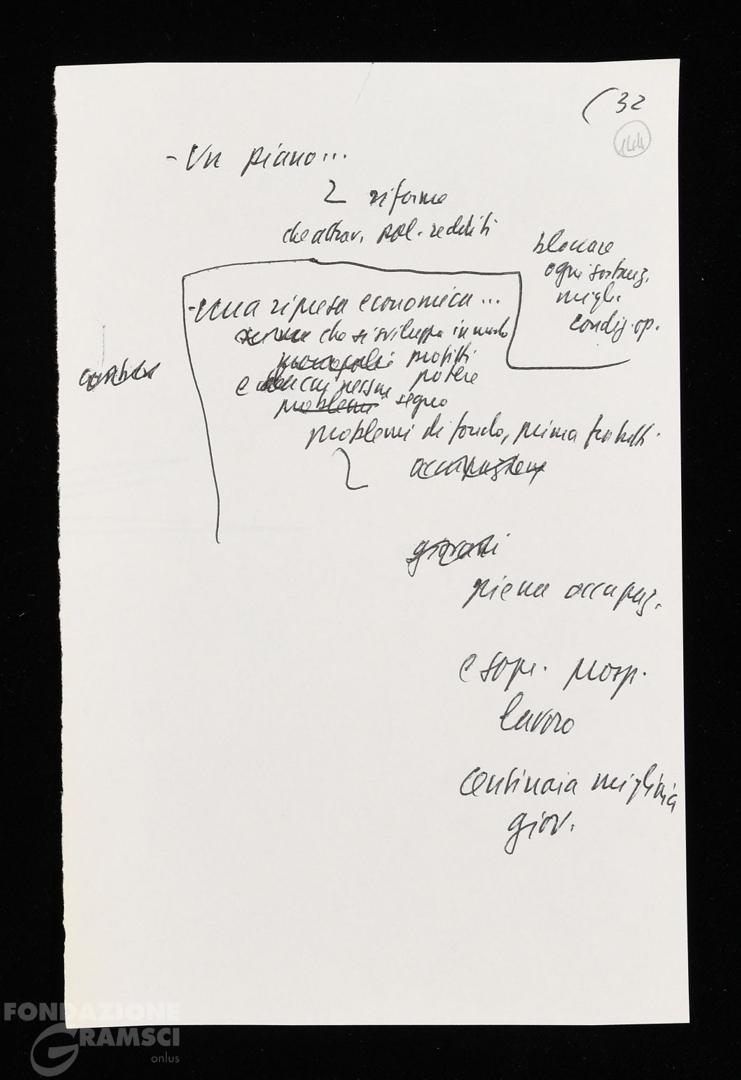 (32
144
- Un piano...
2 riforme
che attrav. pol. redditi
bloccare
ogni sostanz.
migl.
condiz. op.
- Una ripresa economica...
che si sviluppa in modo
monopoli profitti
e cui nessun potere
problemi segno
problemi di fondo, prima
occupazione
giovani
piena occupaz.
e sopr. prosp.
lavoro
centinaia migliaia
giov.
FONDAZIONE
GRAMSCI
onlus